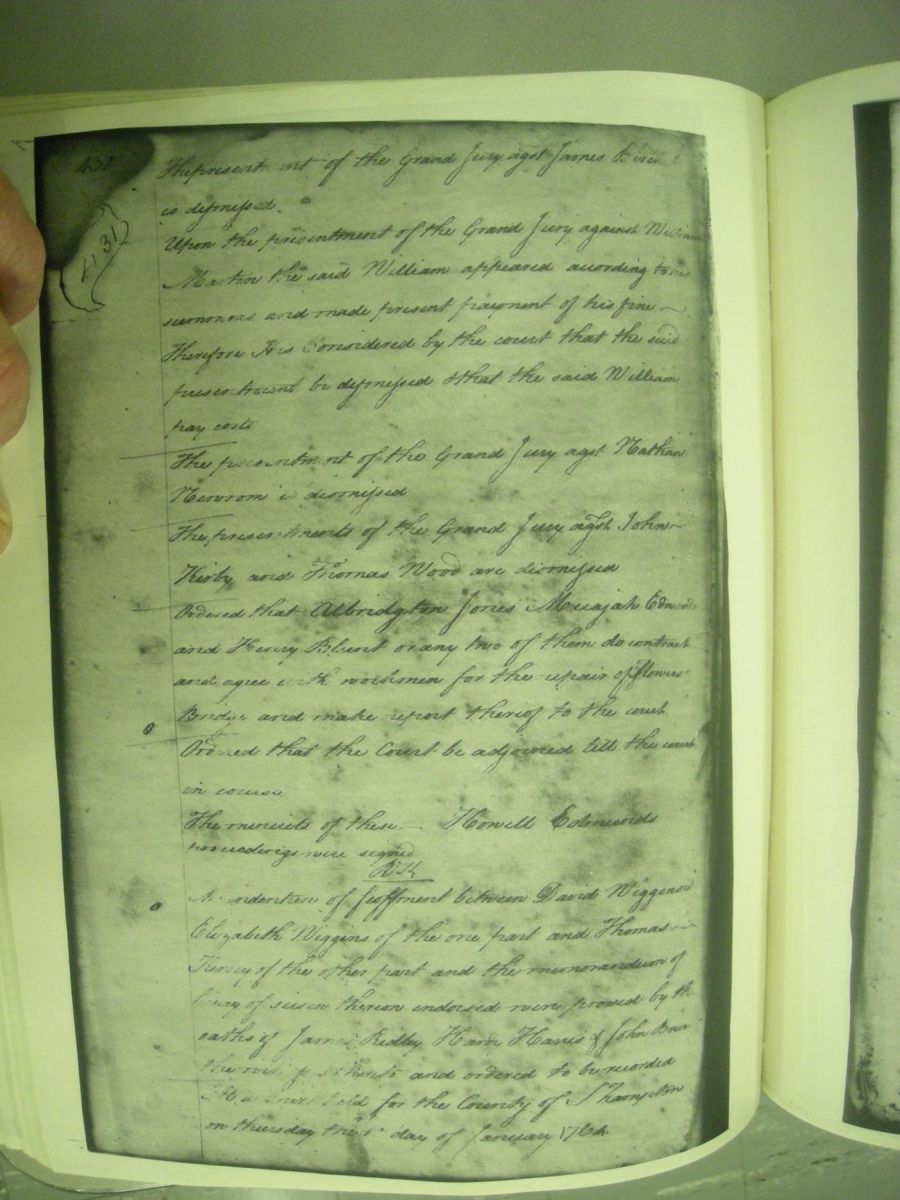 431
431
The presentment of the Grand Jury agst James
is dismissed.
Upon the presentment of the Grand Jury against William
Martin the said William appeared according to his
summons and made present payment of his fine
Therefore It is Considered by the court that the said
presentment be dismissed & that the said William
pay costs
The presentment of the Grand Jury agst Nathan
Newsom is dismissed
The presentments of the Grand Jury agst John
Kirby and Thomas Wood are dismissed
Ordered that Albridgton Jones Micajah Edmunds
and Henry Blunt or any two of them do contract
and agree with workmen for the repair of Flowers
Bridge and make report thereof to the court
Ordered that the Court be adjourned till the court
in course
The minuits of these Howell Edmunds
proceedings were signed
An indenture of feoffment between David Wiggins &
Elizabeth Wiggins of the one part and Thomas
Kersey of the other part and the memorandum of
livery of seisen thereon endorsed were proved by the
oaths of James Ridley Hardy Harris & John
the and ordered to be recorded
At a court held for the County of S Thampton
on thursday the day of January 1764